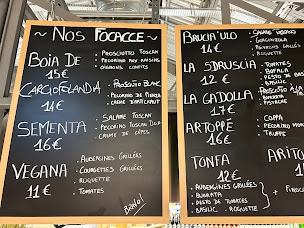 ~ Nos Focacce ~
BOIA DE
15€
• PROSCIUTTO TOSCAN
• PECORINO AUX RAISINS
OIGNONS CONFITS
CARCIOFOLANDIA
14€
• PROSCIUTTO BLANC
• PECORINO DI
• CRÈME D'ARTICHAUT
SEMENTA
16€
• SALAME TOSCAN
• PECORINO TOSCAN DOP
• CRÈME DE CÈPES
VEGANA
11€
• AUBERGINES GRILLÉES
• COURGETTES GRILLÉES
• ROQUETTE
• TOMATES
BRUCIA'ULO
14€
• SALAME
• GORGONZOLA
• POIVRONS GRILLÉS
• ROQUETTE
LA 5DRUSCIA
12€
• TOMATES
• BUFALA
• PESTO DE TOMATES
• BASILIC
LA GADOLLA
17€
• PROSCIUTTO
• BURRATA
• PISTACHE
ARTOPPE
16€
• COPPA
• PECORINO
• TRUFFE
TONFA
12€
• AUBERGINES GRILLÉES
• BURRATA
• PESTO DE TOMATES
• BASILIC . ROQUETTE